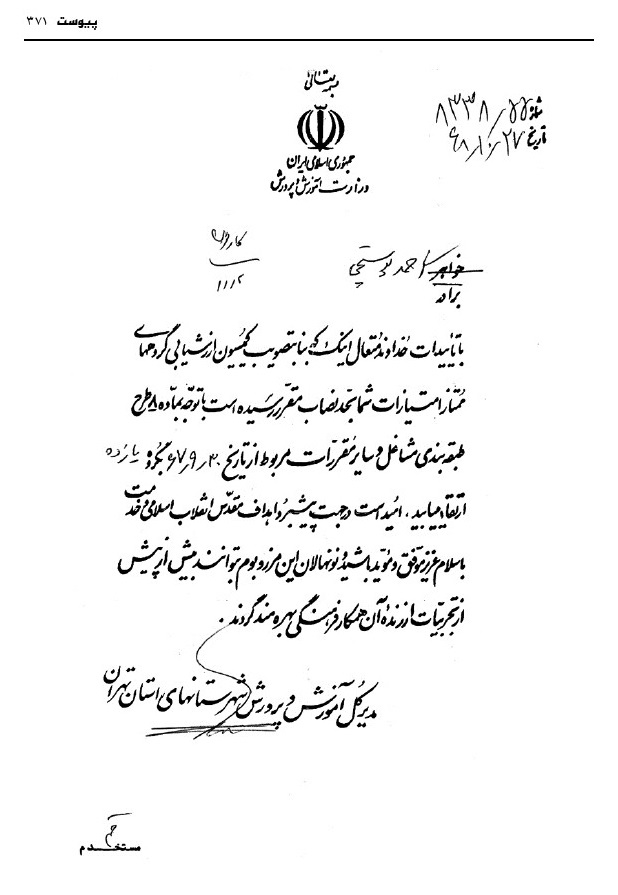 پیوست ۳۷۱
بسمه تعالی
شماره ۸۳۳۸/۵۵
تاریخ ۶۸/۱۰/۲۷
جمهوری اسلامی ایران
وزارت آموزش و پرورش
خواهر احمد
برادر
۱۱/۲
با تاییدات خداوند متعال اینک که بنا بتصویب کمیسیون ارزشیابی گروههای
ممتاز امتیازات شما بحد نصاب مقرر رسیده است با توجه بماده ۸ طرح
طبقه بندی مشاغل و سایر مقررات مربوط از تاریخ ۶۷/۹/۳۰ بگروه یازده
ارتقاء مییابید ، امید است در جهت پیشبرد اهداف مقدس انقلاب اسلامی و خدمت
باسلام عزیز موفق و موید باشید و نونهالان این مرز و بوم بتوانند بیش از پیش
از تجربیات ارزنده آن همکار فرهنگی بهره مند گردند .
مدیر کل آموزش و پرورش شهرستانهای استان تهران
مستخدم